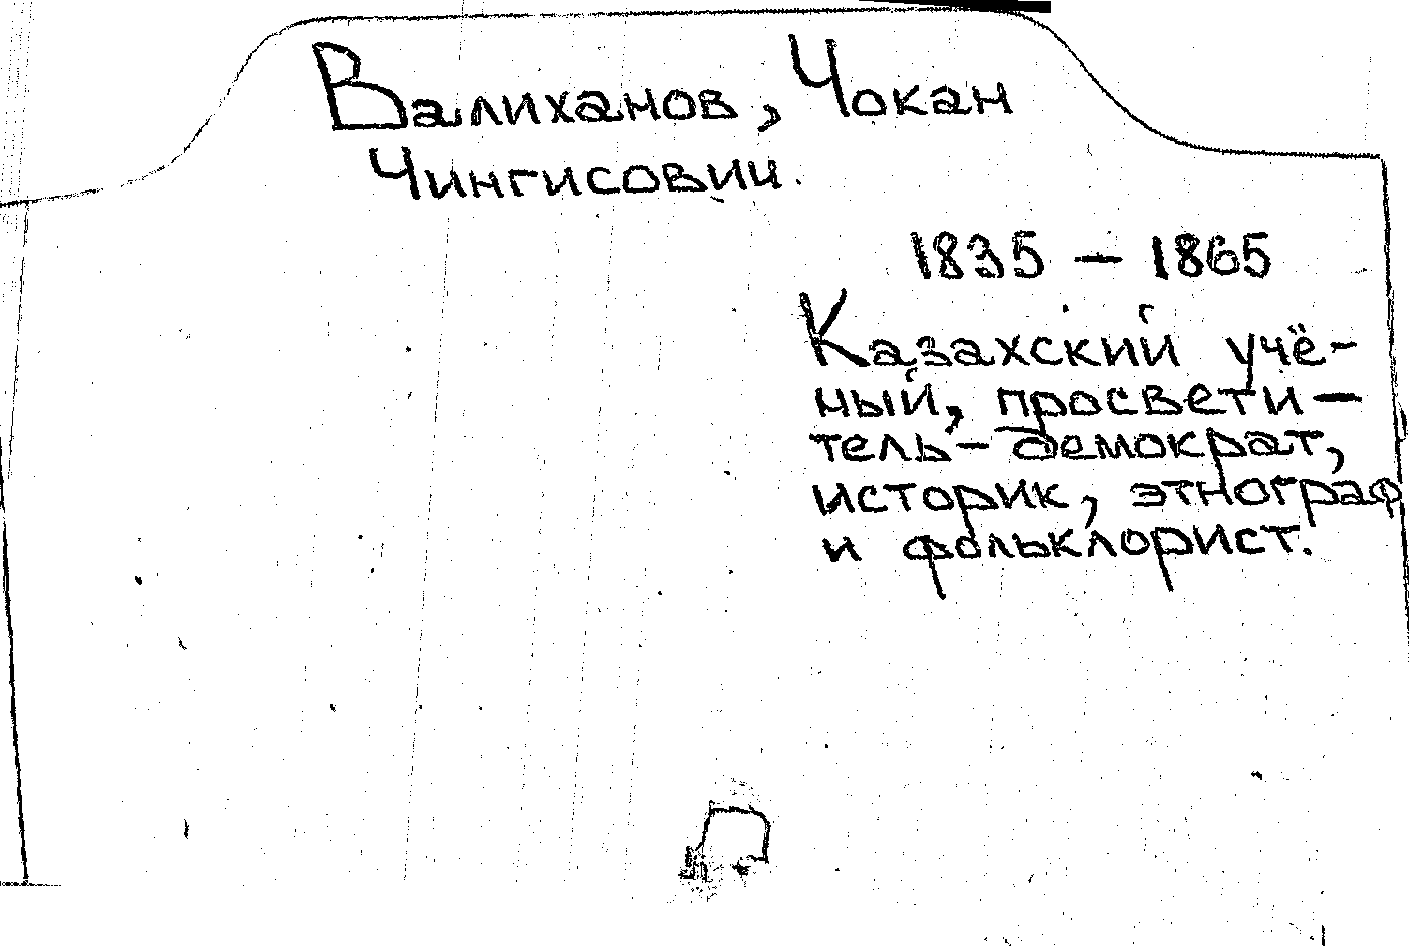 Валиханов, Чокан
Чингисович.
1835 – 1865
Казахский учё-
ный, просвети-
тель-демократ,
историк, этнограф
и фольклорист.